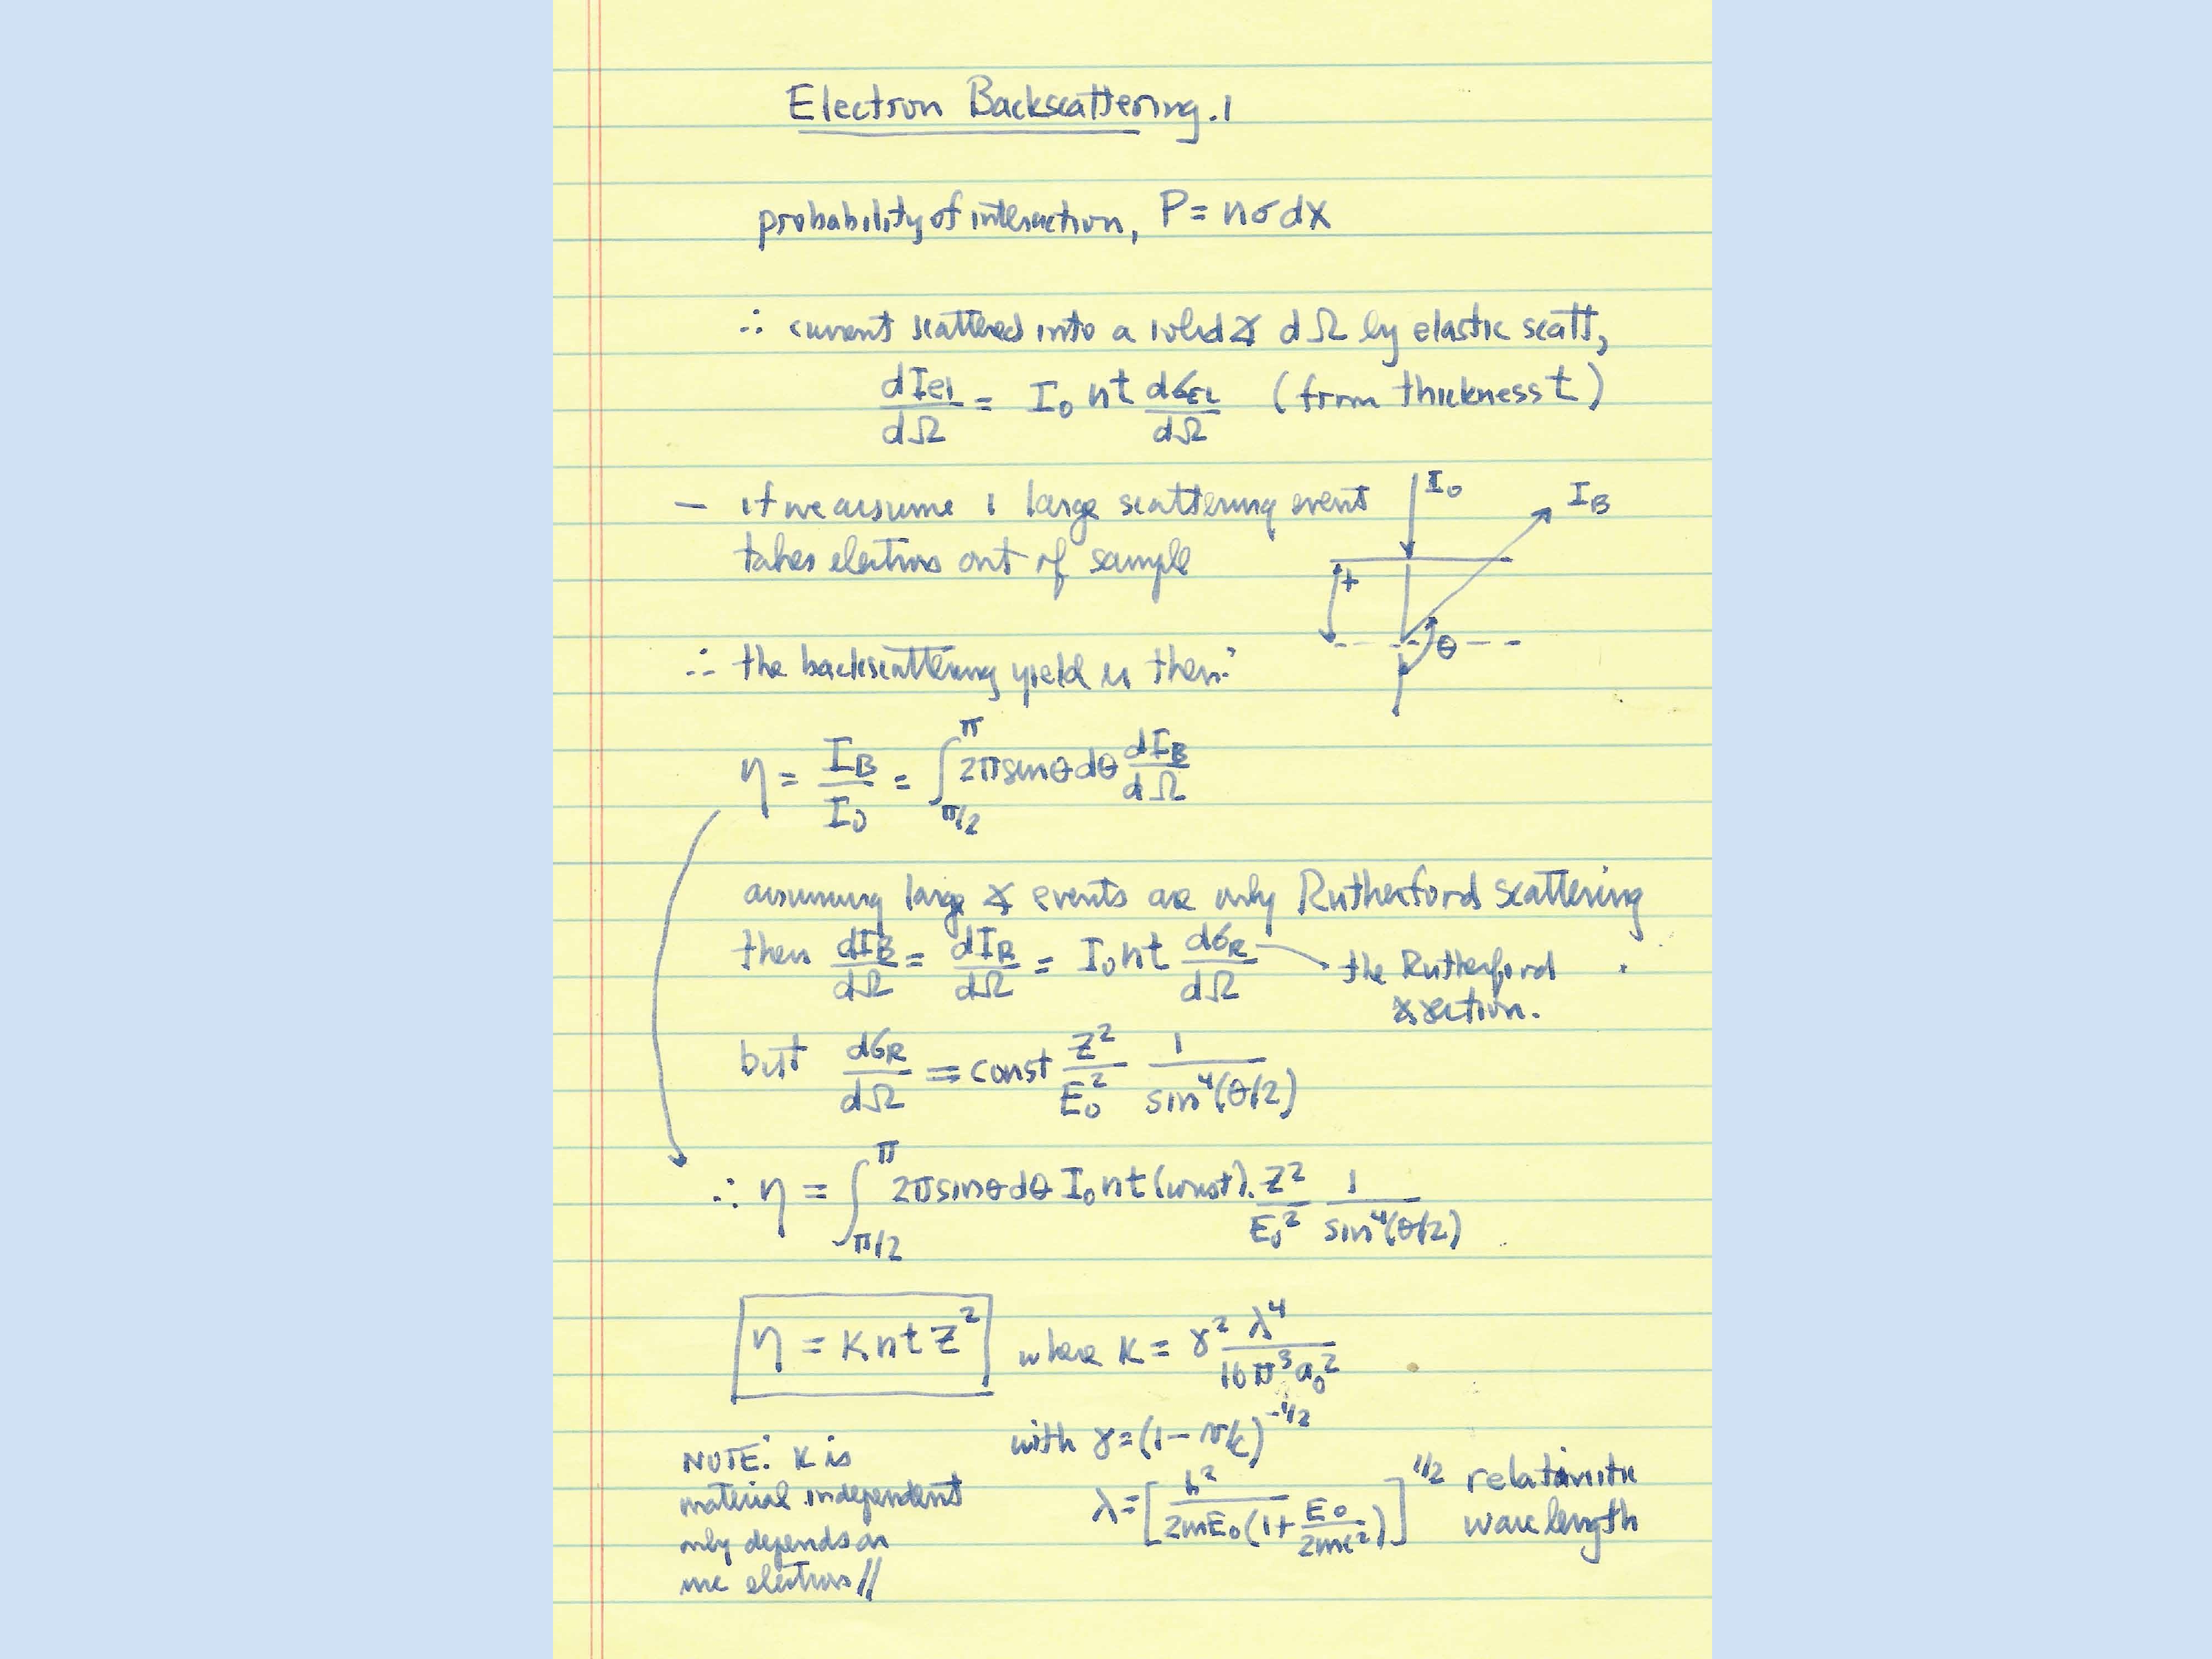 Electron Backscattering.1
probability of interaction, P = nσdx
∴ current scattered into a solid ∡ dΩ by elastic scatt,
dIel/dΩ = I₀ nt dσEL/dΩ (from thickness t)
— if we assume 1 large scattering event
takes electrons out of sample
I₀
I_B
t
θ
∴ the backscattering yield is then:
η = I_B/I₀ = ∫_{π/2}^{π} 2π sinθ dθ dI_B/dΩ
assuming large ∡ events are only Rutherford scattering
then dI_B/dΩ = dI_R/dΩ = I₀nt dσ_R/dΩ
the Rutherford
xsection.
but dσ_R/dΩ = const Z²/E₀² 1/sin⁴(θ/2)
∴ η = ∫_{π/2}^{π} 2π sinθ dθ I₀nt (const). Z²/E₀² 1/sin⁴(θ/2)
η = K n t Z² where K = γ² λ⁴/16π³a₀²
with γ = (1 − v/c)^{-1/2}
λ = [h²/2mE₀(1+E₀/2mc²)]^{1/2} relativistic
wavelength
NOTE: K is
material independent
only depends on
inc electrons//